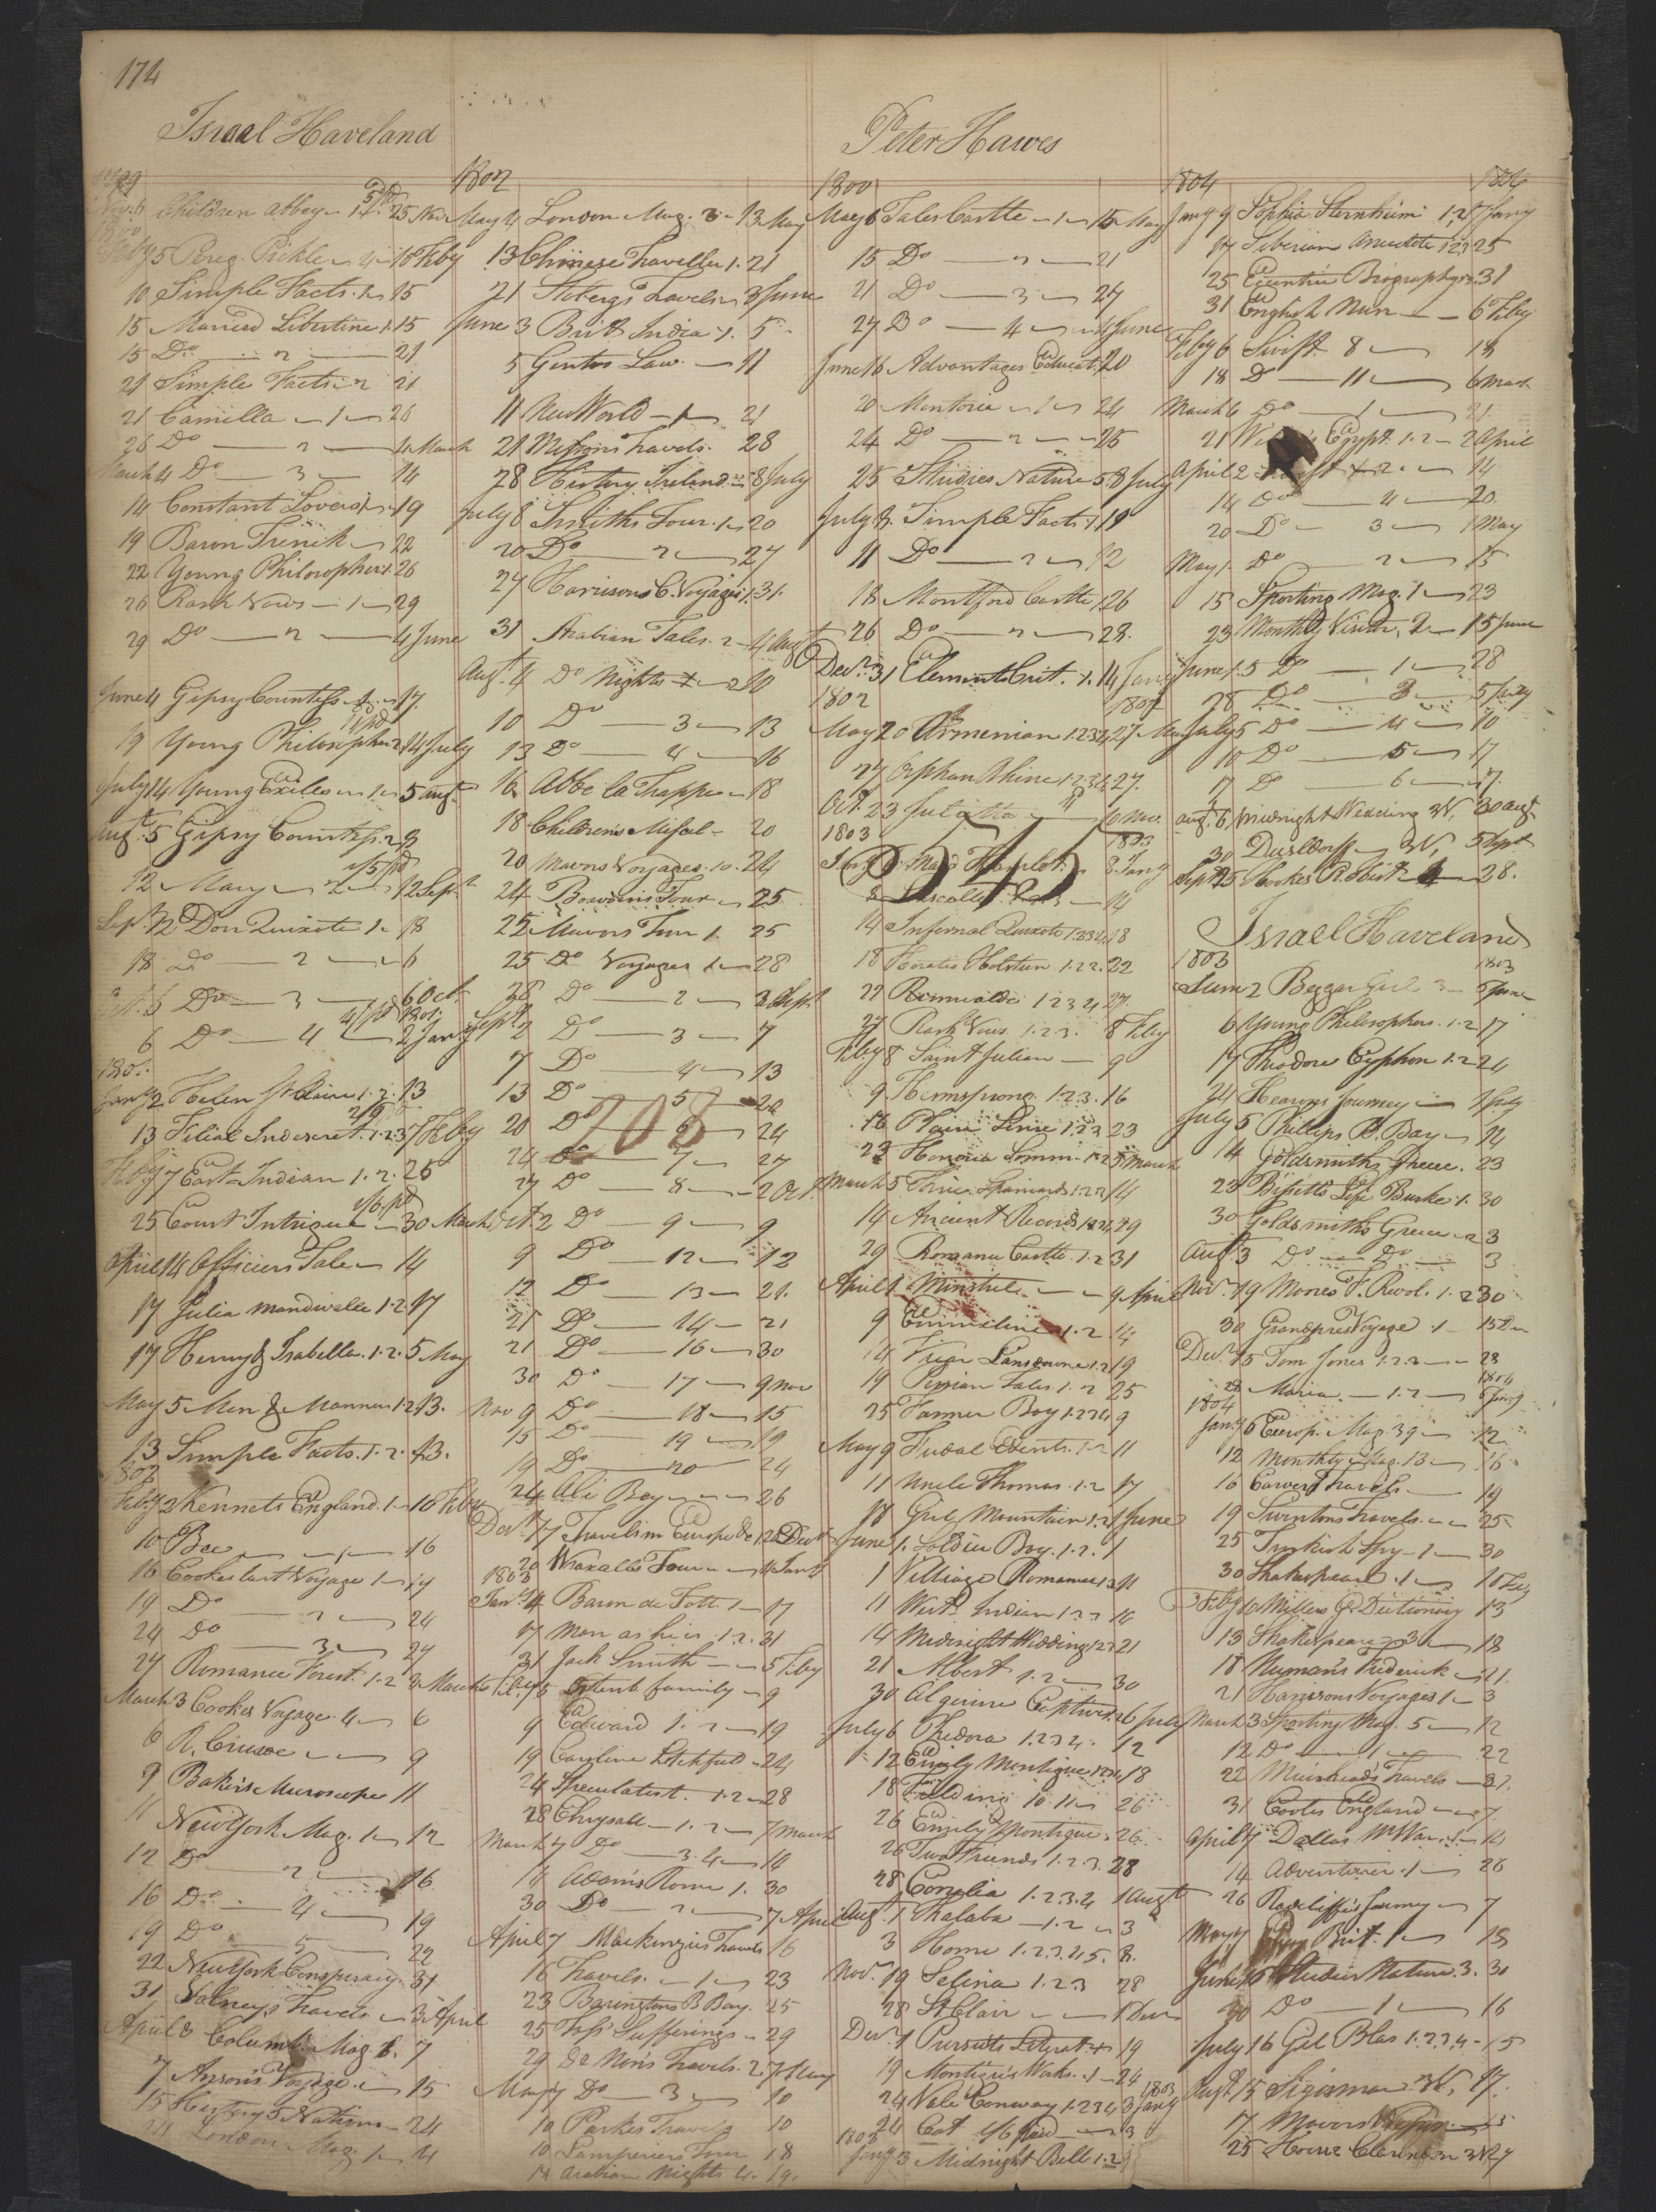 174
Israel Haveland
1799
Nov. 6 Children Abbey 1. 5/pd 25 Nov
1800
Feby 5 Pereg. Pickle 4 10 Feby
10 Simple Facts 1 15
15 Married Libertine 1. 15
15 Do 2 21
21 Simple Facts 2 21
21 Camilla 1 26
26 Do 2 4 March
March 4 Do 3 14
14 Constant Lovers 19
19 Baron Trenck 22
22 Young Philosopher 1. 26
26 Rash Vows 1 29
29 Do 2 4 June
June 4 Gipsy Countess 1 17.
19 Young Philosopher 2. 14 July
July 14 Young Exiles 1 5 Augt
Augt. 5 Gipsy Countess. 2. 12
12 Mary 2 1/5 pd 12 Sept
Sep. 12 Don Quixote 1. 18
18 Do 2 6
Oct. 6 Do 3 6 Oct.
6 Do 4 4/ pd 1801. 2 Jany
1801.
Jany 2 Helen St Claire 1. 2. 13
13 Filial Indiscret. 1. 2. 3 7 Feby
Feby 7 East Indian 1. 2. 25
25 Court Intrigue 1/6 pd 30 March
April 14 Officers Tale 14
17 Julia Mandiville 1. 2. 17
17 Henry & Isabella. 1. 2. 5 May
May 5 Men & Manners 1. 2 13.
13 Simple Facts. 1. 2. 13.
1802
Feby 2 Kennets England. 1 10 Feby
10 Bee 1 16
16 Cookes last Voyage 1 19
19 Do 2 24
24 Do 3 27
27 Romance Forest. 1. 2 3 March
March 3 Cookes Voyage. 4 6
6 R. Crusoe 9
9 Bakers Microscope 11
11 New York Mag. 1 12
12 Do 2 16
16 Do 4 19
19 Do 5 22
22 New York Conspiracy. 31
31 Volneys Travels 3 April
April 3 Columb. Mag. 1. 7
7 Ansons Voyage 15
15 History 5 Nations 24
24 London Mag. 1 4
1802
May 4 London Mag. 2 13 May
13 Chinese Traveller 1. 21
21 Stobergs Travels 3 June
June 3 Brit India 1. 5
5 Gentoo Law. 11
11 New World 1 21
21 Missons Travels. 28
28 History Ireland 8 July
July 8 Smiths Tour. 1 20
20 Do 2 27
27 Harrisons C. Voyages 1. 31.
31 Arabian Tales. 2 4 Augt
Augt. 4 Do Nights 2 10
10 Do 3 13
13 Do 4 16
16 Abbe la Trappe 18
18 Childrens Misal 20
20 Mavors Voyages. 10. 24
24 Bowdins Tour 25
25 Mavors Tour 1. 25
25 Do Voyages 1 28
28 Do 2 2 Sept
Sept. 2 Do 3 7
7 Do 4 13
13 Do 5 20
20 Do 6 24
208
24 Do 7 27
27 Do 8 2 Oct
Oct 2 Do 9 9
9 Do 12 12
12 Do 13 21.
21 Do 14 21
21 Do 16 30
30 Do 17 9 Nov
Nov 9 Do 18 15
15 Do 19 19
19 Do 20 24
24 Ali Bey 26
Decr. 17 Travels in Europe &c 1. 20 Decr
20 Wraxalls Tour 4 Jany
1803
Jany. 4 Baron de Tott. 1 17
17 Man as he is. 1. 2. 31
31 Jack Smith 5 Feby
Feby 5 Family 9
9 Edward 1. 2 19
19 Caroline Litchfield 24
24 Speculatist. 1. 2 28
28 Chrysall 1. 2 7 March
March 7 Do 3. 4 14
14 Adams Rome 1. 30
30 Do 2 7 April
April 7 Mackenzies Travels 16
16 Travels. 1 23
23 Baringtons B Bay. 25
25 Foss Sufferings 29
29 De Nons Travels. 2. 7 May
May 7 Do 3 10
10 Parkes Travels 10
10 Lamperiers Tour 18
18 Arabian Nights 4. 19.
Peter Hawes
1800
May 6 Tales Castle 1 15 May
15 Do 2 21
21 Do 3 27
27 Do 4 4 June
June 16 Advantages Educat. 20
20 Mentoria 1 24
24 Do 2 25
25 Studies Nature 5. 8 July
July 8. Simple Facts 1. 11
11 Do 2 12
18 Montford Castle 1. 26
26 Do 2 28.
Decr. 31 Elements Crit. 1. 14 Jany
1802 1802
May 20 Armenian 1. 2 3 4. 27 May
27 Orphan Rhine 1. 2 3 4. 27.
Oct. 23 Julietta 10 Nov.
1803 1803
Jany Maid Hamlet. 8 Jany
8 14
14 Infernal Quixote 1. 2 3 4. 18
18 Horatio Holstein 1. 2 3. 22
22 Rinnaldi 1 2 3 4. 27.
27 Rash Vows 1. 2 3. 8 Feby
Feby 8 Saint Julian 9
9 Hermsprong 1. 2 3. 16
16 Plain Sense 1. 2 3 23
23 Honoria Somm. 1. 2 5 March
March 5 Three Spaniards 1. 2 3 14
14 Ancient Records 1. 2 3 4 29
29 Romance Castle. 1. 2 31
April 1 Minstrel 9 April
9 Emmeline 1. 2 14
14 Friar Lansdowne 1. 2 19
19 Persian Tales 1. 2 25
25 Farmer Boy 1. 2 3 4 9
May 9 Fudal Events. 1. 2 11
11 Uncle Thomas 1. 2 17
17 Grey Mountain 1. 2 1 June
June 1. Soldier Boy. 1. 2. 1
1 Village Romance 1. 2 11
11 West Indian 1. 2 3 14
14 Midnight Wedding 1. 2 3 21
21 Albert 1. 2 30
30 Algerine Captive 6 July
July 6 Thedora 1. 2 3 4. 12
12 Emily Montigue 1. 2 3 4 18
18 Fielding 10 11 26
26 Emily Montigue 26
26 Two Friends 1. 2. 3. 28
28 Corrolia 1. 2. 3. 4 1 Augt
Augt. 1 Thalaba 1. 2 3
3 Home 1. 2. 3. 4. 5. 8.
Nov. 19 Selina 1. 2 3 28
28 St Clair 1 Decr
Decr. 1 Pursuits Literat. 19
19 Montigue Works. 1 24
24 Vale Conway 1. 2 3 4 3 Jany 1803
24 Cat 1/6 paid 3
1803
Jany 3 Midnight Bell 1. 2 9
1804 1804
Jany 9 Sophia Sternheim 1. 2. 17 Jany
17 Siberian Anecdote 1. 2 3 25
25 Eccentric Biography 31
31 English Nun 6 Feby
Feby 6 Swift 8 18
18 Do 11 6 March
March 6 Do 1 21.
21 Egypt. 1. 2 2 April
April 2 Swift 2. 14
14 Do 4 20.
20 Do 3 1 May
May 1. Do 2 15
15 Sporting Mag. 1 23
23 Monthly Visitor, 2 15 June
June 15 Do 1 28
28 Do 3 5 July
July 5 Do 4 10
10 Do 5 17
17 Do 6 17.
Augt. 6 Midnight Wedding 3 V. 30 Augt
30 Dusldorff 3 V, 5 Sept
Sept 15 Hookes R. Hist 4 28.
Israel Haveland
1803 1803
June 2 Beggar Girl 3 6 June
6 Young Philosopher. 1. 2 17
17 Theodore Cyphon 1. 2 24
24 Hearons Journey 5 July
July 5 Phillips B. Bay 14
14 Goldsmiths Greece. 23
23 Bissetts Life Burke 1. 30
30 Goldsmiths Greece 2 3
Augt. 3 Do Do 3
Nov. 19 Moores F. Revol. 1. 2 30
30 Grandpres Voyage 1 15 Decr
Decr. 15 Tom Jones 1. 2. 3 28
28 Maria 1. 2 6 Jany 1804
1804
Jany 6 Europ. Mag. 39 12
12 Monthly Mag. 13 16
16 Carvers Travels 19
19 Swintons Travels 25
25 Turkish Spy 1 30
30 Shakespeare. 1 10 Feby
Feby 10 Millers G. Dictionary 13
13 Shakespeare 3 18
18 Numans Frederick 21.
21 Harrisons Voyages 1 3
March 3 Sporting Mag. 5 12
12 Do 1 22
22 Muirheads Travels 31.
31 Cootes England 7
April 7 Dallas M War. 1 14
14 Adventurer 1 26
26 Radcliffes Journey 7
May 7 Brit. 1 18
June 15 Studies Nature. 3. 30
30 Do 1 16
July 16 Gil Blas 1. 2. 3. 4 15
Augt. 15 Sigismar 3 V, 17.
17 Mavors Voyages.
25 House Clarendon 3 V 27